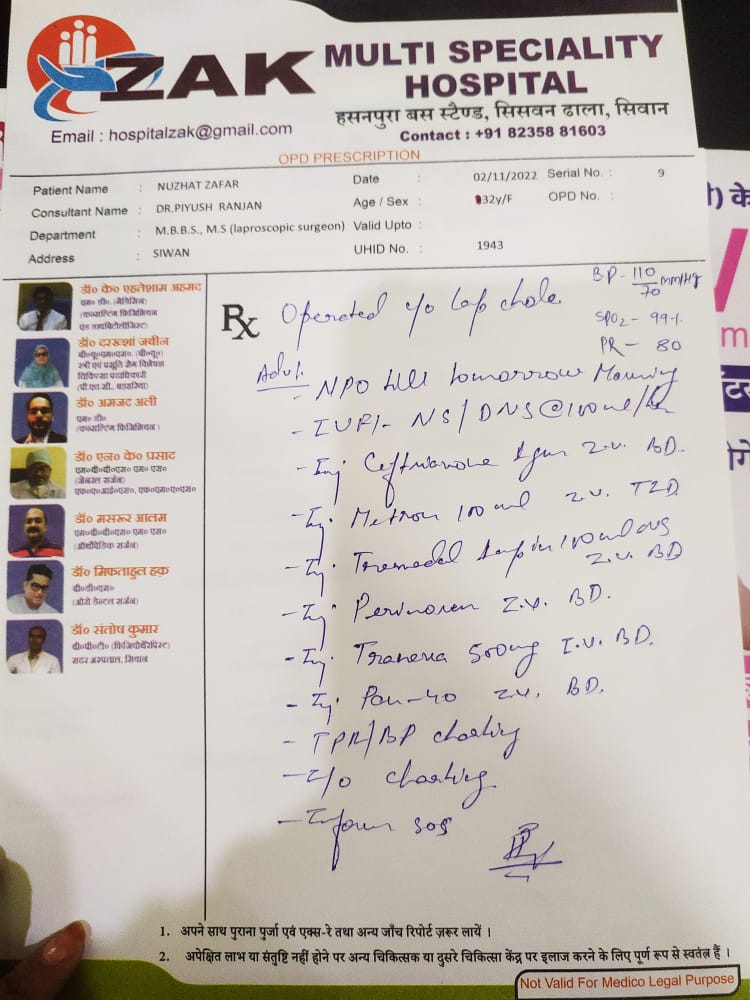 ZAK MULTI SPECIALITY
HOSPITAL
हसनपुरा बस स्टैण्ड, सिसवन ढाला, सिवान
Email : hospitalzak@gmail.com
Contact : +91 82358 81603
OPD PRESCRIPTION
Patient Name : NUZHAT ZAFAR
Date : 02/11/2022
Serial No. : 9
Consultant Name : DR.PIYUSH RANJAN
Age / Sex : 32y/F
OPD No. :
Department : M.B.B.S., M.S (laproscopic surgeon)
Valid Upto :
Address : SIWAN
UHID No. : 1943
डॉ० के० एहतेशाम अहमद
एम० डी० (मेडिसिन)
(कन्सल्टिंग फिजिशियन
एंड डायबिटोलॉजिस्ट)
डॉ० दरख्शां जबीन
बी०यू०एम०एस० (बी०यू०)
स्त्री एवं प्रसूति रोग विशेषज्ञ
चिकित्सा पदाधिकारी
(पी एच सी., बड़हरिया)
डॉ० अमजद अली
एम० डी०
(कन्सल्टिंग फिजिशियन)
डॉ० एन० के० प्रसाद
एम०बी०बी०एस० एम० एस०
(जेनरल सर्जन)
एफ०ए०आई०एस०, एफ०एम०ए०एस०
डॉ० मसरूर आलम
एम०बी०बी०एस० एम० एस०
(ऑर्थोपेडिक सर्जन)
डॉ० मिफताहुल हक़
बी०डी०एस०
(ओरो डेन्टल सर्जन)
डॉ० संतोष कुमार
बी०पी०टी० (फिजियोथेरेपिस्ट)
सदर अस्पताल, सिवान
BP - 110/70 mmHg
SPO2 - 99%
PR - 80
Rx Operated c/o lap chole
Adv.
- NPO till tomorrow Morning
- IVF/- NS/DNS @100ml/hr
- Inj Ceftriaxone 1gm I.V. BD.
- Inj. Metron 100ml I.V. TID.
- Inj. Tramadol 1amp in 100ml NS
I.V. BD
- Inj. I.V. BD.
- Inj. Tranexa 500mg I.V. BD.
- Inj. Pan-40 I.V. BD.
- TPR/BP charting
- I/O charting
- Inform SOS
1. अपने साथ पुराना पुर्जा एवं एक्स-रे तथा अन्य जाँच रिपोर्ट ज़रूर लायें ।
2. अपेक्षित लाभ या संतुष्टि नहीं होने पर अन्य चिकित्सक या दुसरे चिकित्सा केंद्र पर इलाज करने के लिए पूर्ण रूप से स्वतंत्र हैं ।
Not Valid For Medico Legal Purpose